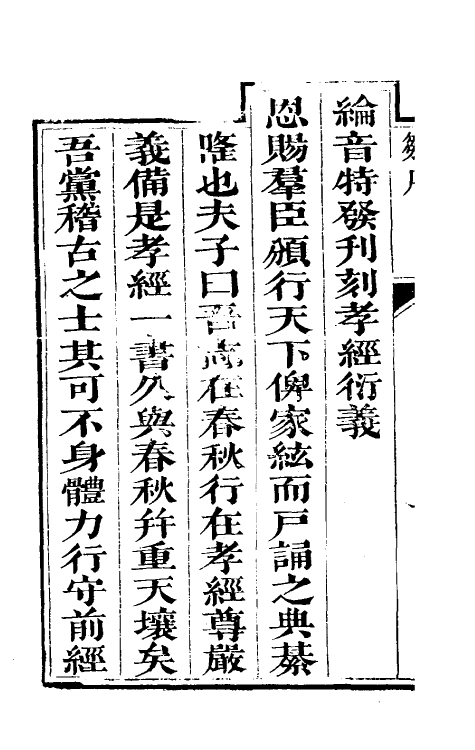 綸音特發刊刻孝經衍義
恩賜羣臣頒行天下俾家絃而戸誦之典綦
隆也夫子曰吾在春秋行在孝經尊嚴
義備是孝經一書久與春秋幷重天壤矣
吾黨稽古之士其可不身體力行守前經